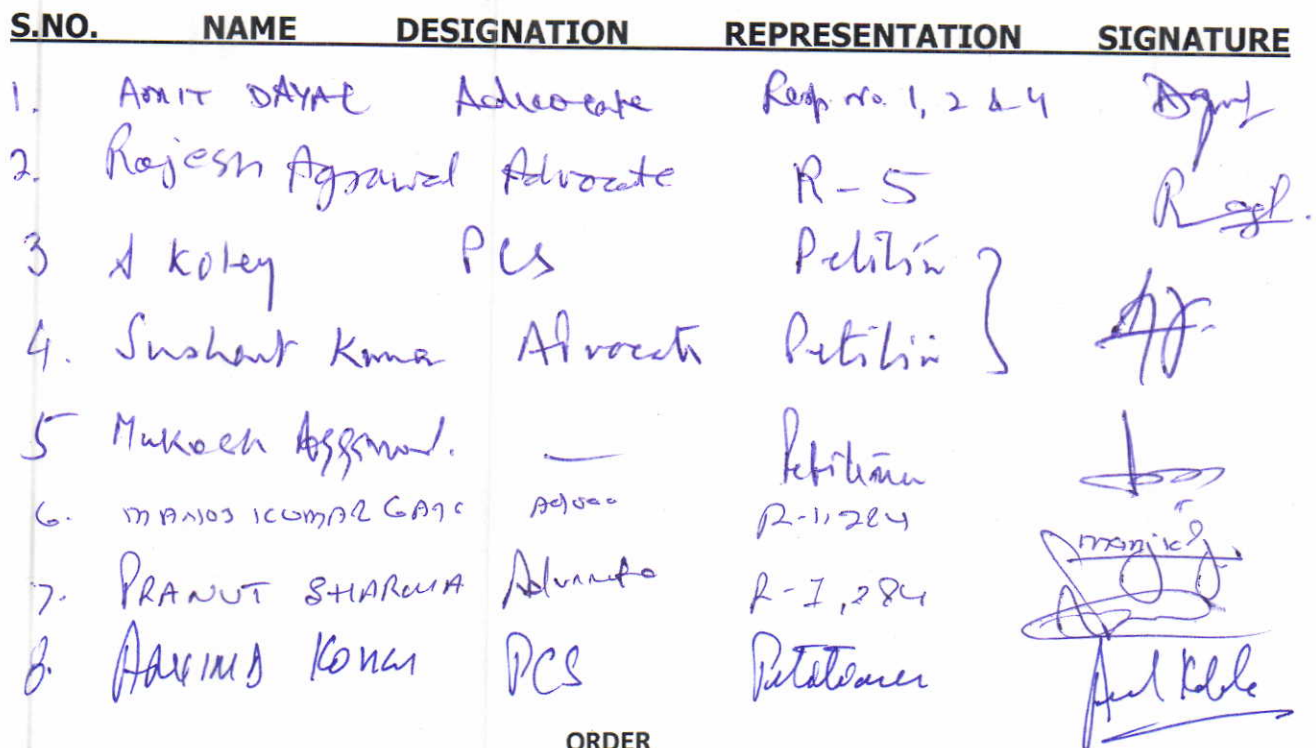 S.NO. NAME DESIGNATION REPRESENTATION SIGNATURE
1. AMIT DAYAL Advocate Resp no. 1, 2 & 4
2. Rajesh Agrawal Advocate R-5
3 A Koley PCS Petition
4. Sushant Kumar Advocate Petition
5 Mukesh Aggarwal. — Petitioner
6. MANOJ KUMAR GARG R-1, 2&4
7. PRANJIT SHARMA Advocate R-1, 2&4
8. ARVIND Kumar PCS Petitioner
ORDER